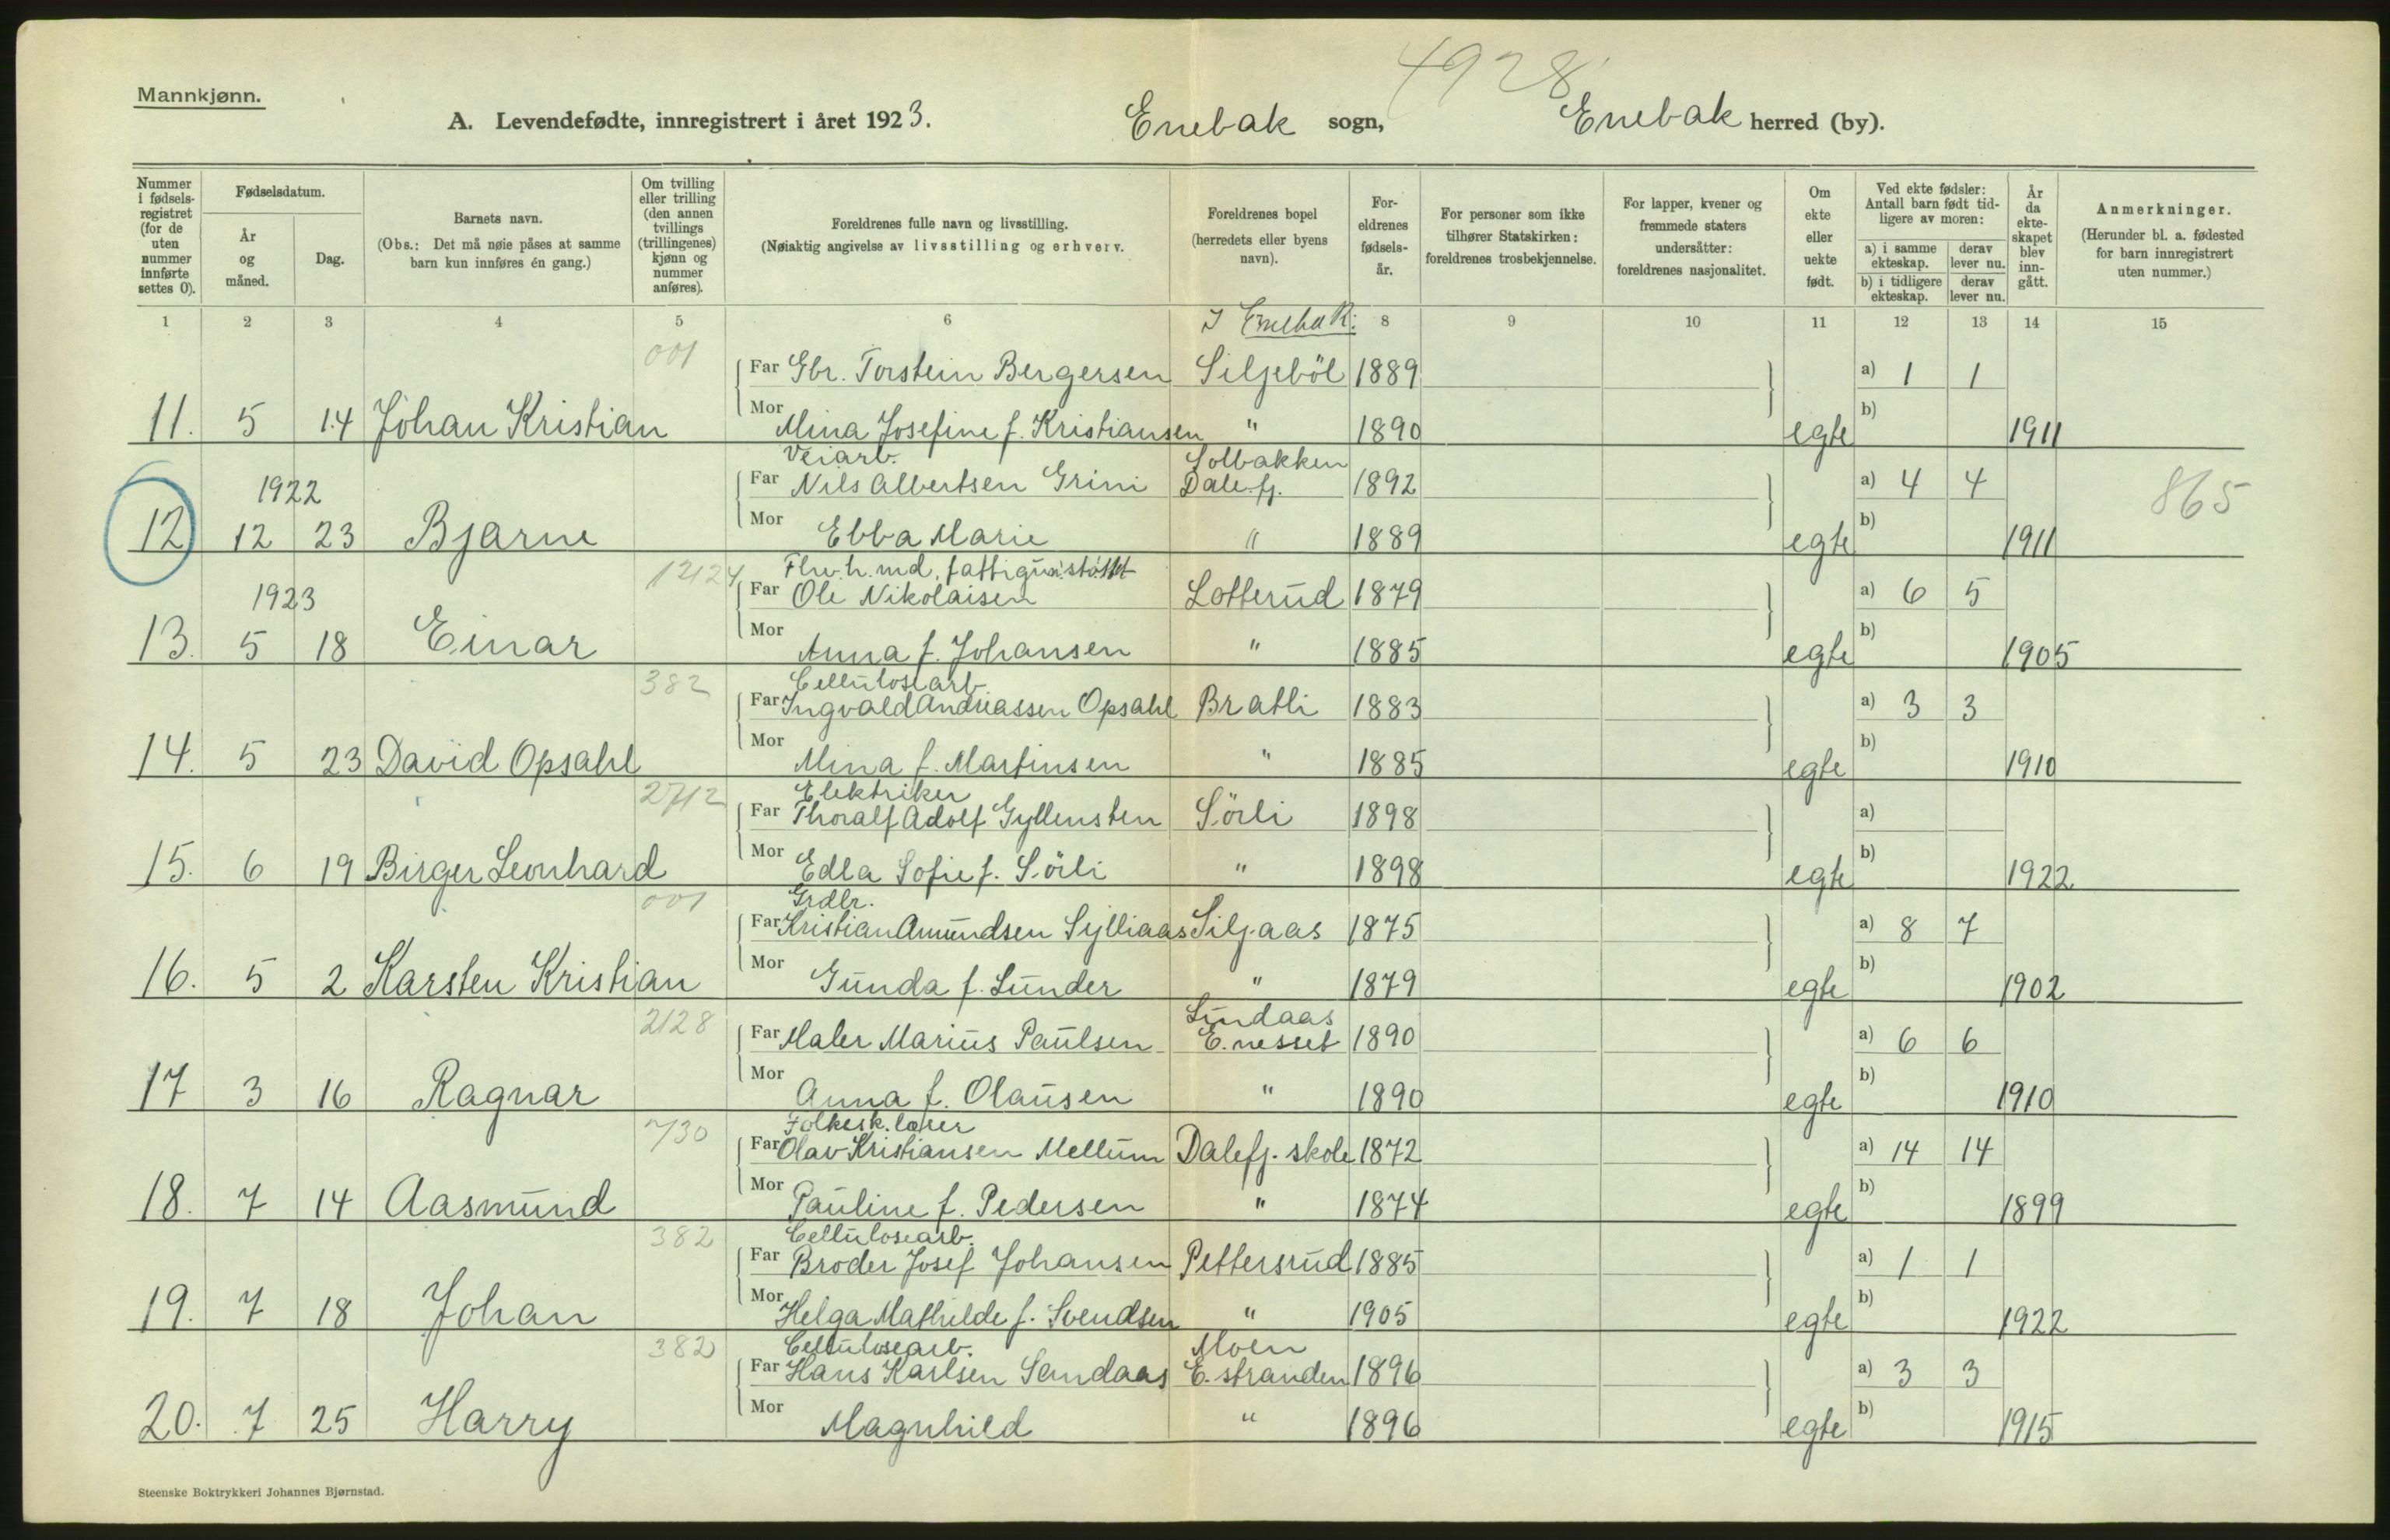 4928
Mannkjønn.
A. Levendefødte, innregistrert i året 1923. Enebak sogn, Enebak herred (by).
Nummer i fødsels-registret (for de uten nummer innførte settes 0).
Fødselsdatum.
År og måned.
Dag.
Barnets navn.
(Obs.: Det må nøie påses at samme barn kun innføres én gang.)
Om tvilling eller trilling (den annen tvillings (trillingenes) kjønn og nummer anføres).
Foreldrenes fulle navn og livsstilling.
(Nøiaktig angivelse av livsstilling og erhverv.
Foreldrenes bopel (herredets eller byens navn).
For-eldrenes fødsels-år.
For personer som ikke tilhører Statskirken: foreldrenes trosbekjennelse.
For lapper, kvener og fremmede staters undersåtter: foreldrenes nasjonalitet.
Om ekte eller uekte født.
Ved ekte fødsler: Antall barn født tid-ligere av moren:
a) i samme ekteskap. derav lever nu.
b) i tidligere ekteskap. derav lever nu.
År da ekte-skapet blev inn-gått.
Anmerkninger.
(Herunder bl. a. fødested for barn innregistrert uten nummer.)
1 2 3 4 5 6 I Enebak: 8 9 10 11 12 13 14 15
001
Far Gbr. Torstein Bergersen Siljeböl 1889 a) 1 1
11. 5 14 Johan Kristian Mor Mina Josefine f. Kristiansen " 1890 egte b) 1911
Veiarb. Solbakken
1922 Far Nils Albertsen Grini Dalefj. 1892 a) 4 4 865
12 12 23 Bjarne Mor Ebba Marie " 1889 egte b) 1911
12124
1923 Far Ole Nikolaisen Lotterud 1879 a) 6 5
13. 5 18 Einar Mor Anna f. Johansen " 1885 egte b) 1905
382 Cellulosearb.
Far Ingvald Andreassen Opsahl Bratli 1883 a) 3 3
14. 5 23 David Opsahl Mor Mina f. Martinsen " 1885 egte b) 1910
2712 Elektriker
Far Thoralf Adolf Gyllensten Sörli 1898 a)
15. 6 19 Birger Leonhard Mor Edla Sofie f. Sörli " 1898 egte b) 1922
001 Grdbr.
Far Kristian Amundsen Sylliaas Siljaas 1875 a) 8 7
16. 5 2 Karsten Kristian Mor Gunda f. Lunder " 1879 egte b) 1902
2128 Lundaas
Far Maler Marius Paulsen E. nesset 1890 a) 6 6
17 3 16 Ragnar Mor Anna f. Olausen " 1890 egte b) 1910
730 Folkesk. lærer
Far Olav Kristiansen Mellum Dalefj. skole 1872 a) 14 14
18. 7 14 Aasmund Mor Pauline f. Pedersen " 1874 egte b) 1899
382 Cellulosearb.
Far Broder Josef Johansen Pettersrud 1885 a) 1 1
19. 7 18 Johan Mor Helga Mathilde f. Svendsen " 1905 egte b) 1922
382 Cellulosearb. Moen
Far Hans Karlsen Sandaas E. stranden 1896 a) 3 3
20. 7 25 Harry Mor Magnhild " 1896 egte b) 1915
Steenske Boktrykkeri Johannes Bjørnstad.